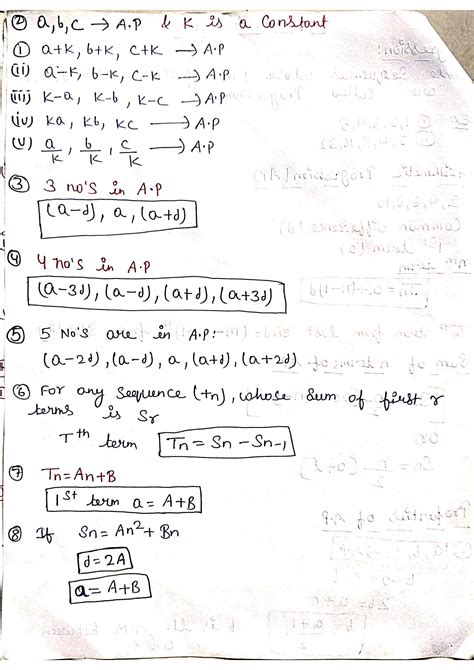 ② a, b, c → A.P & K is a Constant
① a+K, b+K, C+K → A.P
(ii) a-K, b-K, C-K → A.P
(iii) K-a, K-b, K-c → A.P
(iv) Ka, Kb, KC → A.P
(v) a/K, b/K, c/K → A.P
③ 3 no's in A.P
(a-d), a, (a+d)
④ 4 no's in A.P
(a-3d), (a-d), (a+d), (a+3d)
⑤ 5 No's are in A.P:
(a-2d), (a-d), a, (a+d), (a+2d)
⑥ For any Sequence (tn), whose Sum of first r
terms is Sr
Tth term Tn = Sn - Sn-1
⑦ Tn = An+B
1st term a = A+B
⑧ If Sn = An²+ Bn
d = 2A
a = A+B